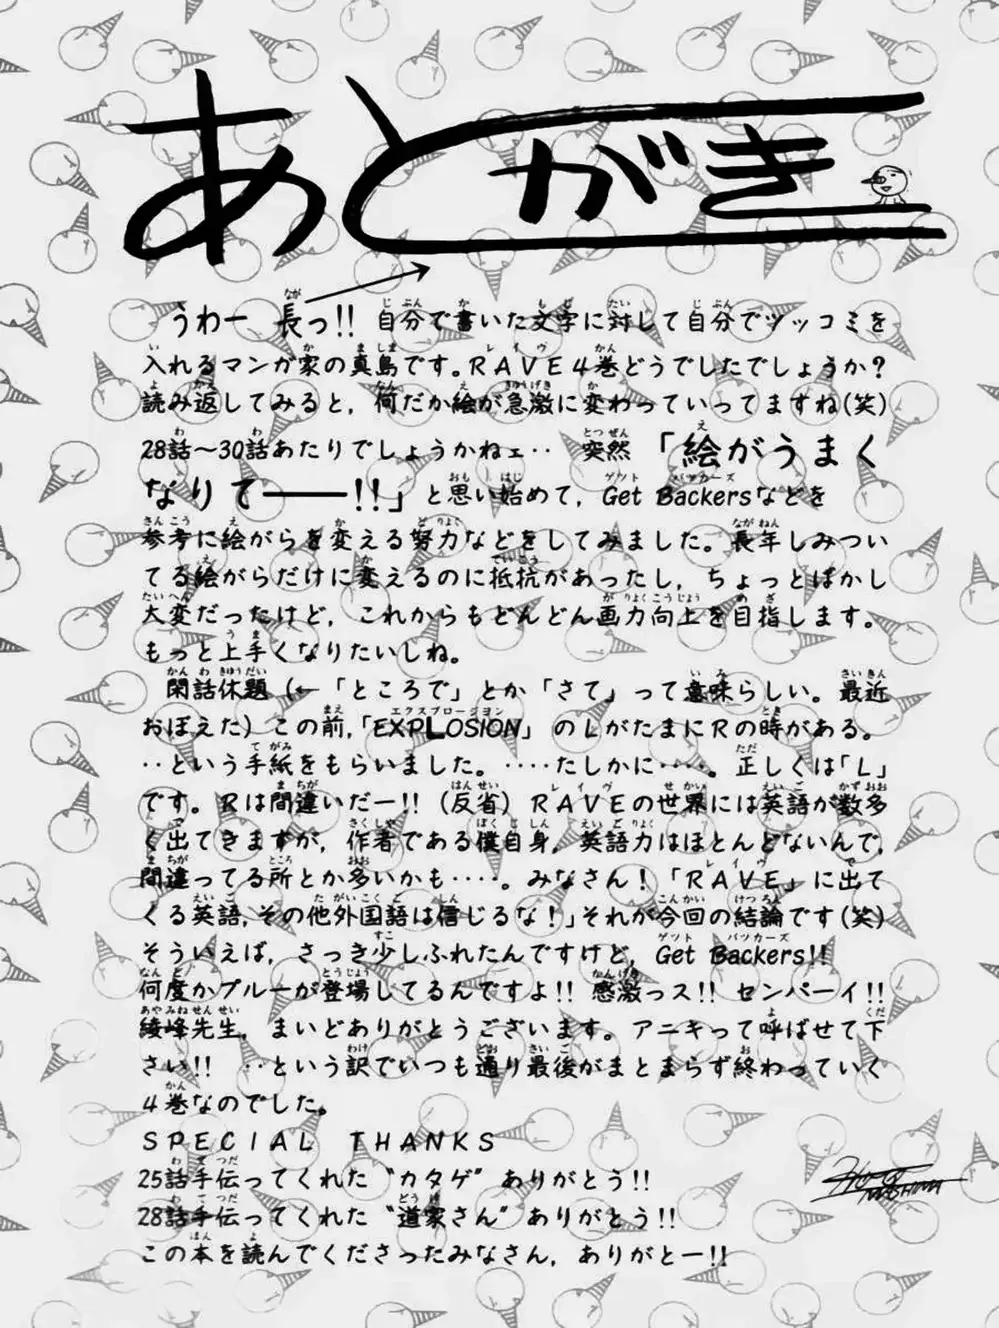 あとがき
うわー 長っ!! 自分で書いた文字に対して自分でツッコミを
入れるマンガ家の真島です。RAVE4巻どうでしたでしょうか?
読み返してみると,何だか絵が急激に変わっていってますね(笑)
28話〜30話あたりでしょうかねェ‥ 突然「絵がうまく
なりて――!!」と思い始めて,Get Backersなどを
参考に絵がらを変える努力などをしてみました。長年しみつい
てる絵がらだけに変えるのに抵抗があったし,ちょっとばかし
大変だったけど,これからもどんどん画力向上を目指します。
もっと上手くなりたいしね。
閑話休題(←「ところで」とか「さて」って意味らしい。最近
おぼえた)この前,「EXPLOSION」のLがたまにRの時がある。
‥という手紙をもらいました。‥‥たしかに‥‥。正しくは「L」
です。Rは間違いだー!!(反省)RAVEの世界には英語が数多
く出てきますが,作者である僕自身,英語力はほとんどないんで,
間違ってる所とか多いかも‥‥。みなさん!「RAVE」に出て
くる英語,その他外国語は信じるな!」それが今回の結論です(笑)
そういえば,さっき少しふれたんですけど,Get Backers!!
何度かプルーが登場してるんですよ!! 感激っス!! センパーイ!!
綾峰先生,まいどありがとうございます。アニキって呼ばせて下
さい!! ‥という訳でいつも通り最後がまとまらず終わっていく
4巻なのでした。
SPECIAL THANKS
25話手伝ってくれた“カタゲ”ありがとう!!
28話手伝ってくれた“道家さん”ありがとう!!
この本を読んでくださったみなさん,ありがとー!!
HIRO MASHIMA